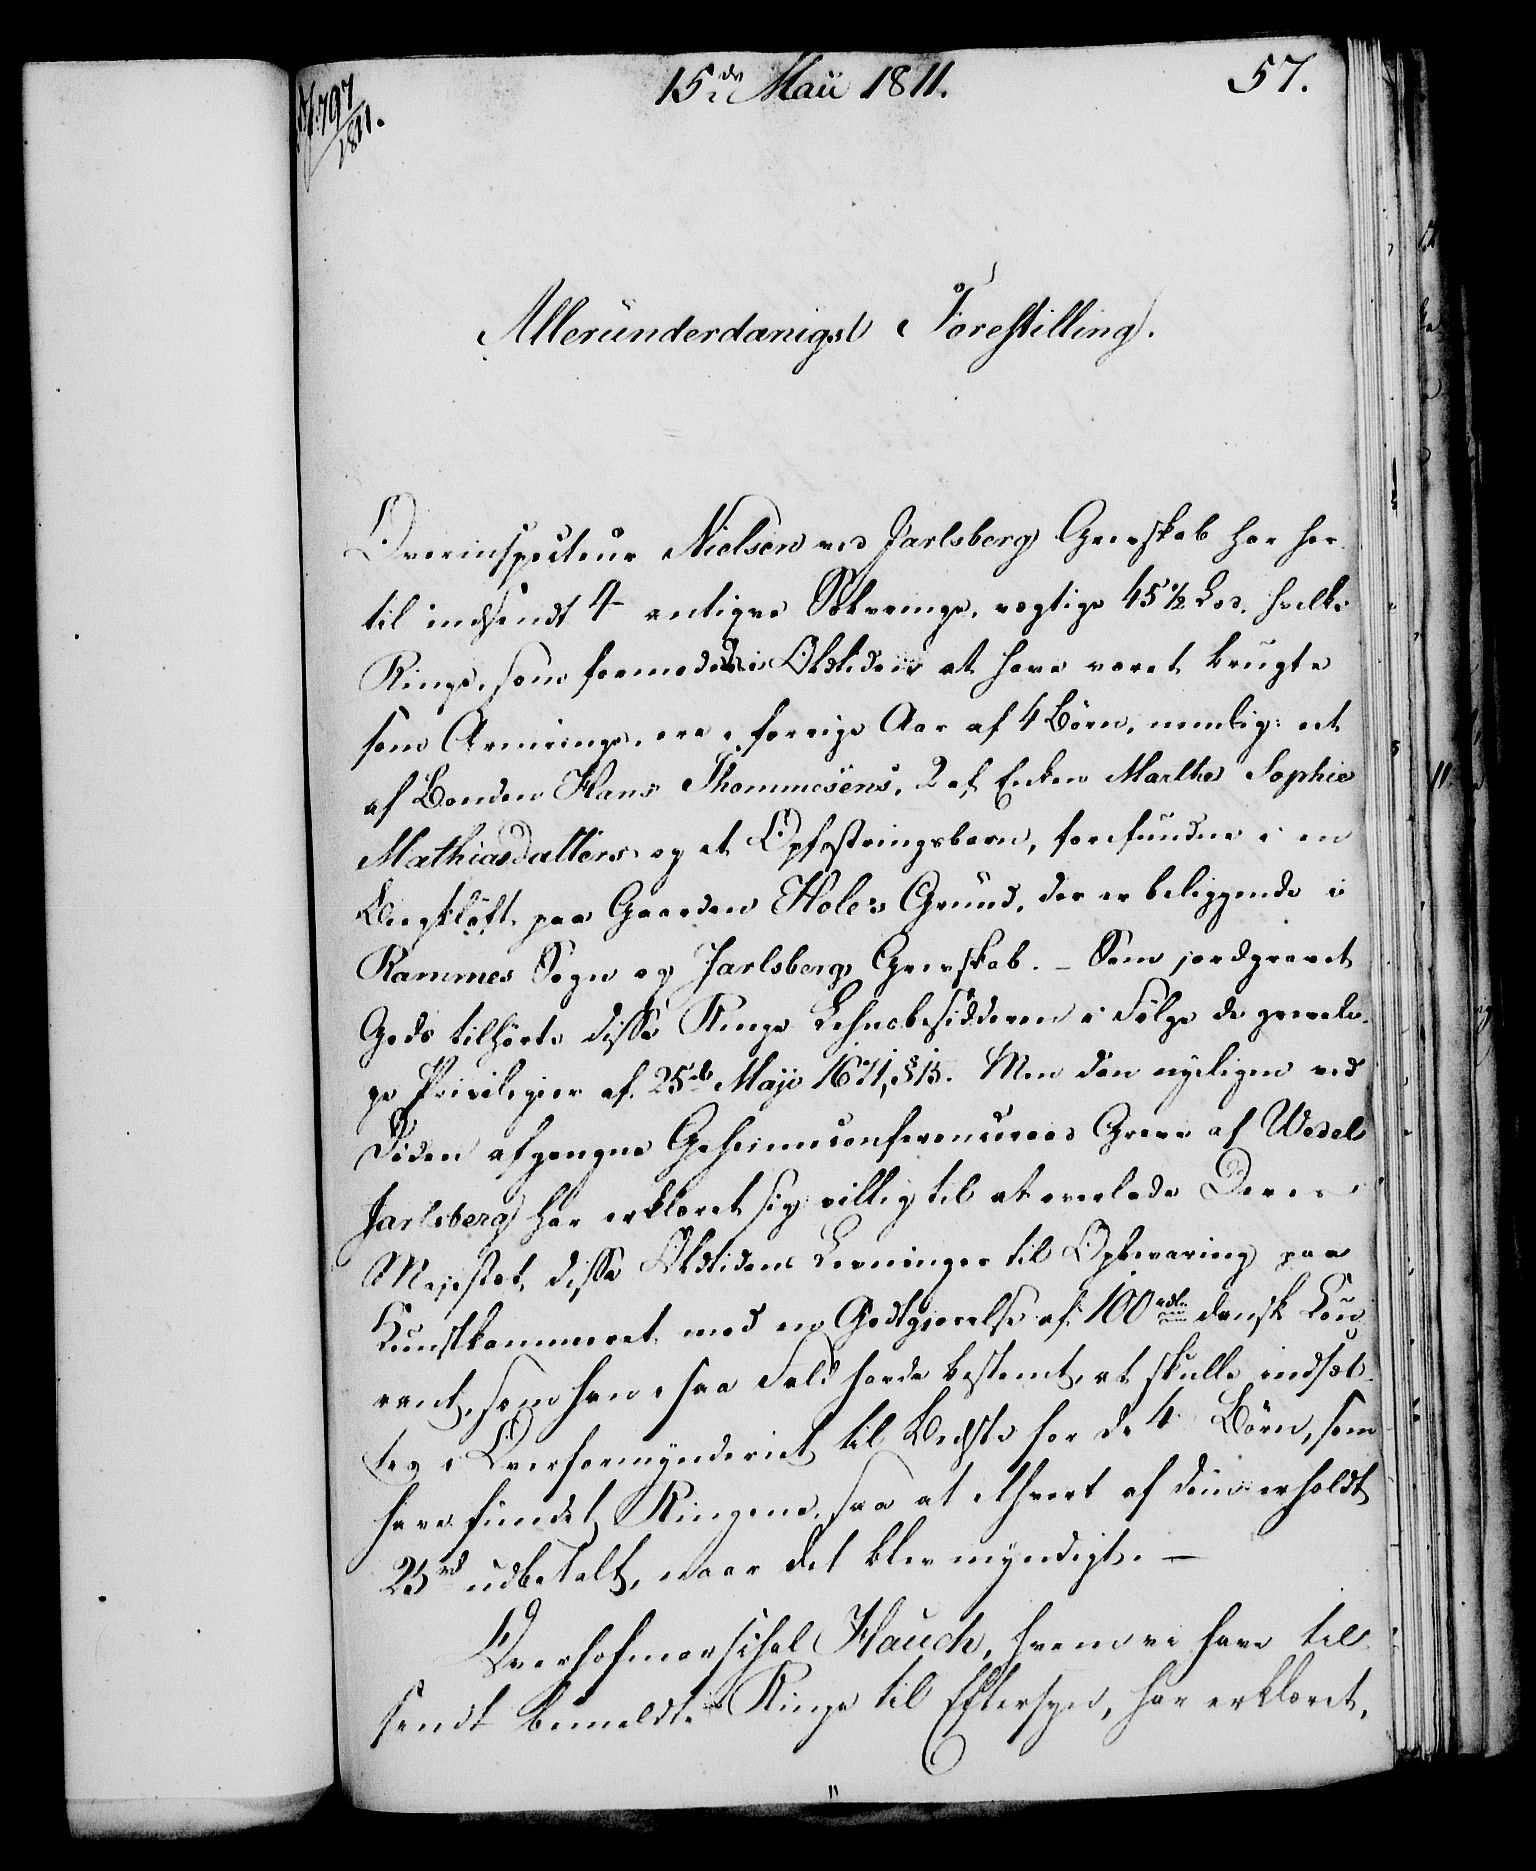 797
1811.
15de Maii 1811.
57.
Allerunderdanigst Forestilling.
Overinspecteur Nielsen ved Jarlsberg Grevskab har her-
til indsendt 4 antiqve Sølvringe, vegtige 45 1/2 Lod, hvilke
Ringe, som formodes i Oldtiden at have været brugte
som Armringe, ere i forrige Aar af 4 Børn, nemlig: et
af Bonden Hans Thommesens, 2 af Enken Marthe Sophie
Mathiasdatters og et Opfostringsbarn, forefundne i en
Bergkløft paa Gaarden Hole's Grund, der er beliggende i
Rammes Sogn og Jarlsberg Grevskab. - Som jordgravet
Gods tilhørte disse Ringe Lehnsbesidderen i Følge de greveli-
ge Privilegier af 25de Maji 1671, § 15. Men den nyeligen ved
Døden afgangne Geheimeconferenceraad Greve af Wedel
Jarlsberg har erklæret sig villig til at overlade Deres
Majestæt disse Oldtidens Levninger til Opbevaring paa
Kunstkammeret mod en Godtgjørelse af 100 rdlr. dansk Cou-
rant, som han i saa Fald havde bestemt, at skulle indsæt-
tes i Overformynderiet til Bedste for de 4 Börn, som
have fundet Ringene, saa at ethvert af dem erholdt
25 rd udbetalt, naar det blev myndigt. -
Overhofmarschal Hauch, hvem vi have til-
sendt bemeldte Ringe til Eftersyn, har erklæret,
"